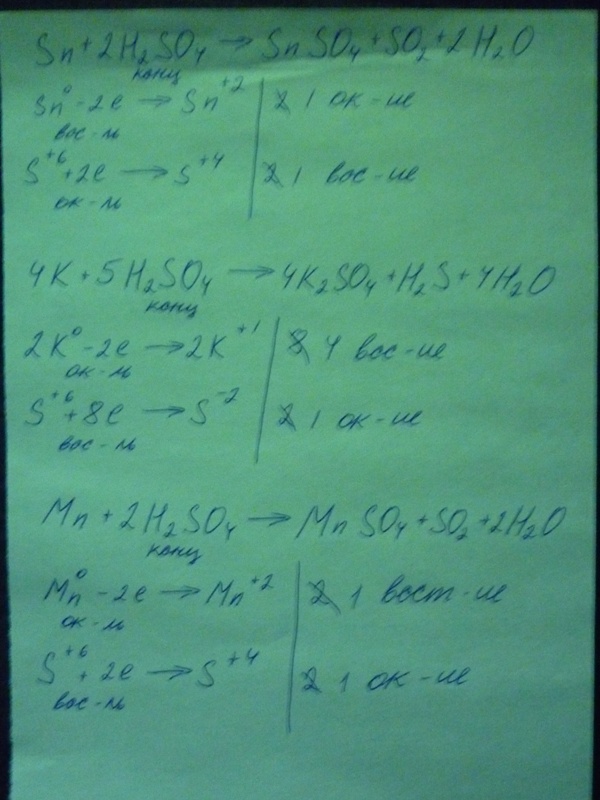 Sn + 2H₂SO₄ → SnSO₄ + SO₂ + 2H₂O
конц
Sn⁰ - 2e → Sn⁺² | 2 1 ок-ие
вос-ль
S⁺⁶ + 2e → S⁺⁴ | 2 1 вос-ие
ок-ль
4K + 5H₂SO₄ → 4K₂SO₄ + H₂S + 4H₂O
конц
2K⁰ - 2e → 2K⁺¹ | 8 4 вос-ие
ок-ль
S⁺⁶ + 8e → S⁻² | 2 1 ок-ие
вос-ль
Mn + 2H₂SO₄ → MnSO₄ + SO₂ + 2H₂O
конц
Mn⁰ - 2e → Mn⁺² | 2 1 восст-ие
ок-ль
S⁺⁶ + 2e → S⁺⁴ | 2 1 ок-ие
вос-ль